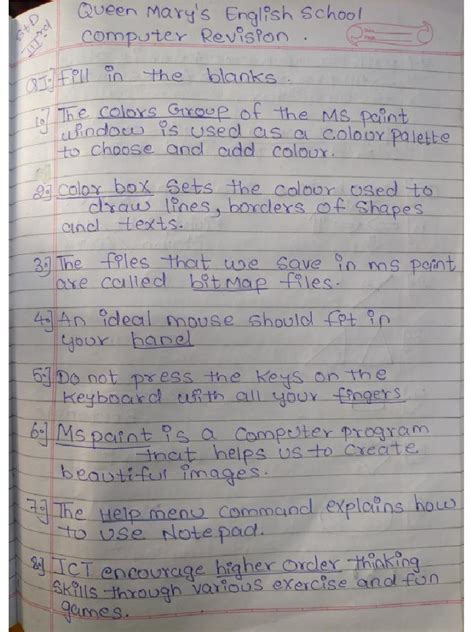 Std IIIrd
Queen Mary's English School
Computer Revision.
Q1:] Fill in the blanks.
1.] The Colors Group of the MS paint
window is used as a colour palette
to choose and add colour.
2.] Color box Sets the colour used to
draw lines, borders of Shapes
and texts.
3.] The files that we save in ms paint
are called bitmap files.
4.] An ideal mouse should fit in
your hand
5.] Do not press the keys on the
keyboard with all your fingers
6.] Ms paint is a computer program
that helps us to create
beautiful images.
7.] The Help menu command explains how
to use Notepad.
8.] ICT encourage higher order thinking
skills through various exercise and fun
games.